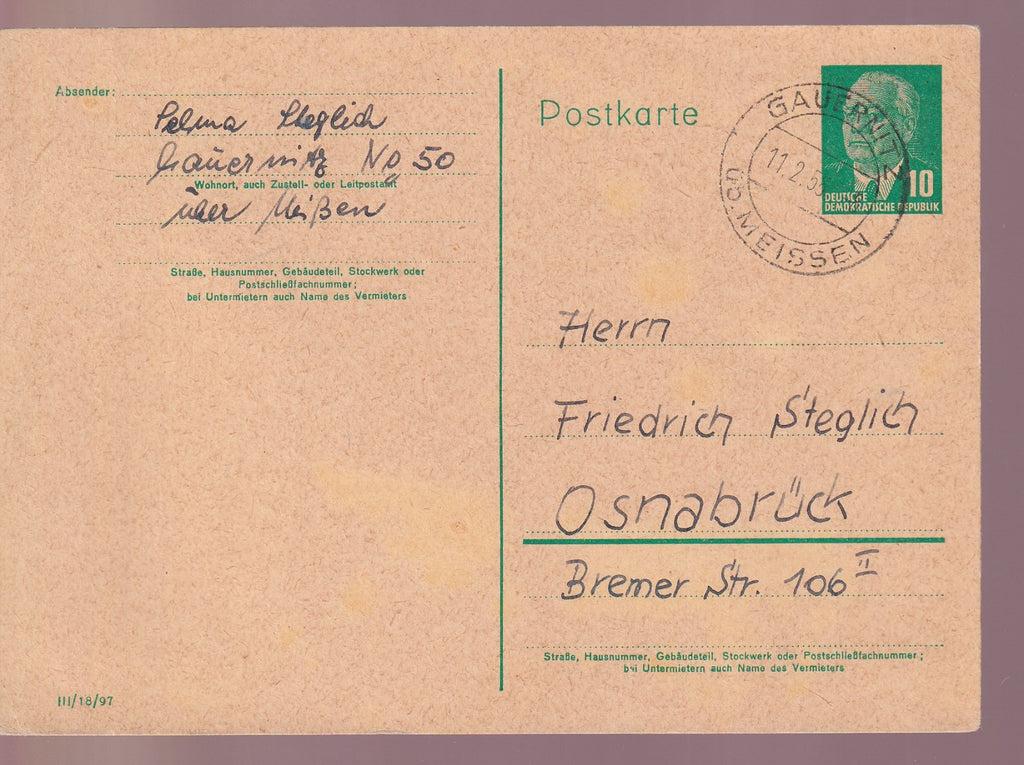 Absender:
Selma Steglich
Gauernitz No 50
Wohnort, auch Zustell- oder Leitpostamt
über Meißen
Straße, Hausnummer, Gebäudeteil, Stockwerk oder
Postschließfachnummer;
bei Untermietern auch Name des Vermieters
III/18/97
Postkarte
GAUERNITZ
11.2.5
MEISSEN
10
DEUTSCHE
DEMOKRATISCHE REPUBLIK
Herrn
Friedrich Steglich
Osnabrück
Bremer Str. 106 II
Straße, Hausnummer, Gebäudeteil, Stockwerk oder Postschließfachnummer;
bei Untermietern auch Name des Vermieters